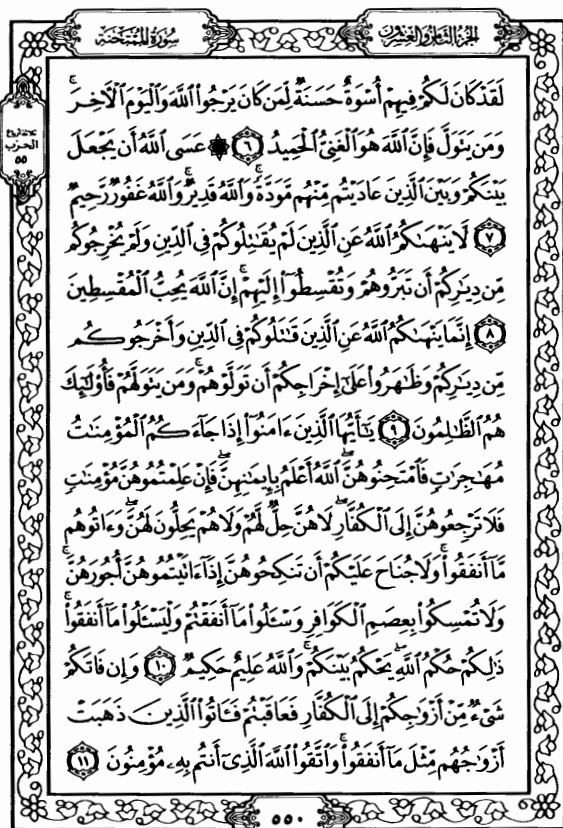 سُورَةُ المُمْتَحنَةِ
الجُزْءُ الثَّامِنُ وَالعِشْرُونَ
ثَلاثَةُ أَرْبَاعِ
الحِزْبِ
٥٥
لَقَدْ كَانَ لَكُمْ فِيهِمْ أُسْوَةٌ حَسَنَةٌ لِّمَن كَانَ يَرْجُوا۟ ٱللَّهَ وَٱلْيَوْمَ ٱلْءَاخِرَ ۚ
وَمَن يَتَوَلَّ فَإِنَّ ٱللَّهَ هُوَ ٱلْغَنِىُّ ٱلْحَمِيدُ ﴿٦﴾ ۞ عَسَى ٱللَّهُ أَن يَجْعَلَ
بَيْنَكُمْ وَبَيْنَ ٱلَّذِينَ عَادَيْتُم مِّنْهُم مَّوَدَّةً ۚ وَٱللَّهُ قَدِيرٌ ۚ وَٱللَّهُ غَفُورٌ رَّحِيمٌ
﴿٧﴾ لَّا يَنْهَىٰكُمُ ٱللَّهُ عَنِ ٱلَّذِينَ لَمْ يُقَـٰتِلُوكُمْ فِى ٱلدِّينِ وَلَمْ يُخْرِجُوكُم
مِّن دِيَـٰرِكُمْ أَن تَبَرُّوهُمْ وَتُقْسِطُوٓا۟ إِلَيْهِمْ ۚ إِنَّ ٱللَّهَ يُحِبُّ ٱلْمُقْسِطِينَ
﴿٨﴾ إِنَّمَا يَنْهَىٰكُمُ ٱللَّهُ عَنِ ٱلَّذِينَ قَـٰتَلُوكُمْ فِى ٱلدِّينِ وَأَخْرَجُوكُم
مِّن دِيَـٰرِكُمْ وَظَـٰهَرُوا۟ عَلَىٰٓ إِخْرَاجِكُمْ أَن تَوَلَّوْهُمْ ۚ وَمَن يَتَوَلَّهُمْ فَأُو۟لَـٰٓئِكَ
هُمُ ٱلظَّـٰلِمُونَ ﴿٩﴾ يَـٰٓأَيُّهَا ٱلَّذِينَ ءَامَنُوٓا۟ إِذَا جَآءَكُمُ ٱلْمُؤْمِنَـٰتُ
مُهَـٰجِرَٰتٍ فَٱمْتَحِنُوهُنَّ ۖ ٱللَّهُ أَعْلَمُ بِإِيمَـٰنِهِنَّ ۖ فَإِنْ عَلِمْتُمُوهُنَّ مُؤْمِنَـٰتٍ
فَلَا تَرْجِعُوهُنَّ إِلَى ٱلْكُفَّارِ ۖ لَا هُنَّ حِلٌّ لَّهُمْ وَلَا هُمْ يَحِلُّونَ لَهُنَّ ۖ وَءَاتُوهُم
مَّآ أَنفَقُوا۟ ۚ وَلَا جُنَاحَ عَلَيْكُمْ أَن تَنكِحُوهُنَّ إِذَآ ءَاتَيْتُمُوهُنَّ أُجُورَهُنَّ ۚ
وَلَا تُمْسِكُوا۟ بِعِصَمِ ٱلْكَوَافِرِ وَسْـَٔلُوا۟ مَآ أَنفَقْتُمْ وَلْيَسْـَٔلُوا۟ مَآ أَنفَقُوا۟ ۚ
ذَٰلِكُمْ حُكْمُ ٱللَّهِ ۖ يَحْكُمُ بَيْنَكُمْ ۚ وَٱللَّهُ عَلِيمٌ حَكِيمٌ ﴿١٠﴾ وَإِن فَاتَكُمْ
شَىْءٌ مِّنْ أَزْوَٰجِكُمْ إِلَى ٱلْكُفَّارِ فَعَاقَبْتُمْ فَـَٔاتُوا۟ ٱلَّذِينَ ذَهَبَتْ
أَزْوَٰجُهُم مِّثْلَ مَآ أَنفَقُوا۟ ۚ وَٱتَّقُوا۟ ٱللَّهَ ٱلَّذِىٓ أَنتُم بِهِۦ مُؤْمِنُونَ ﴿١١﴾
٥٥٠